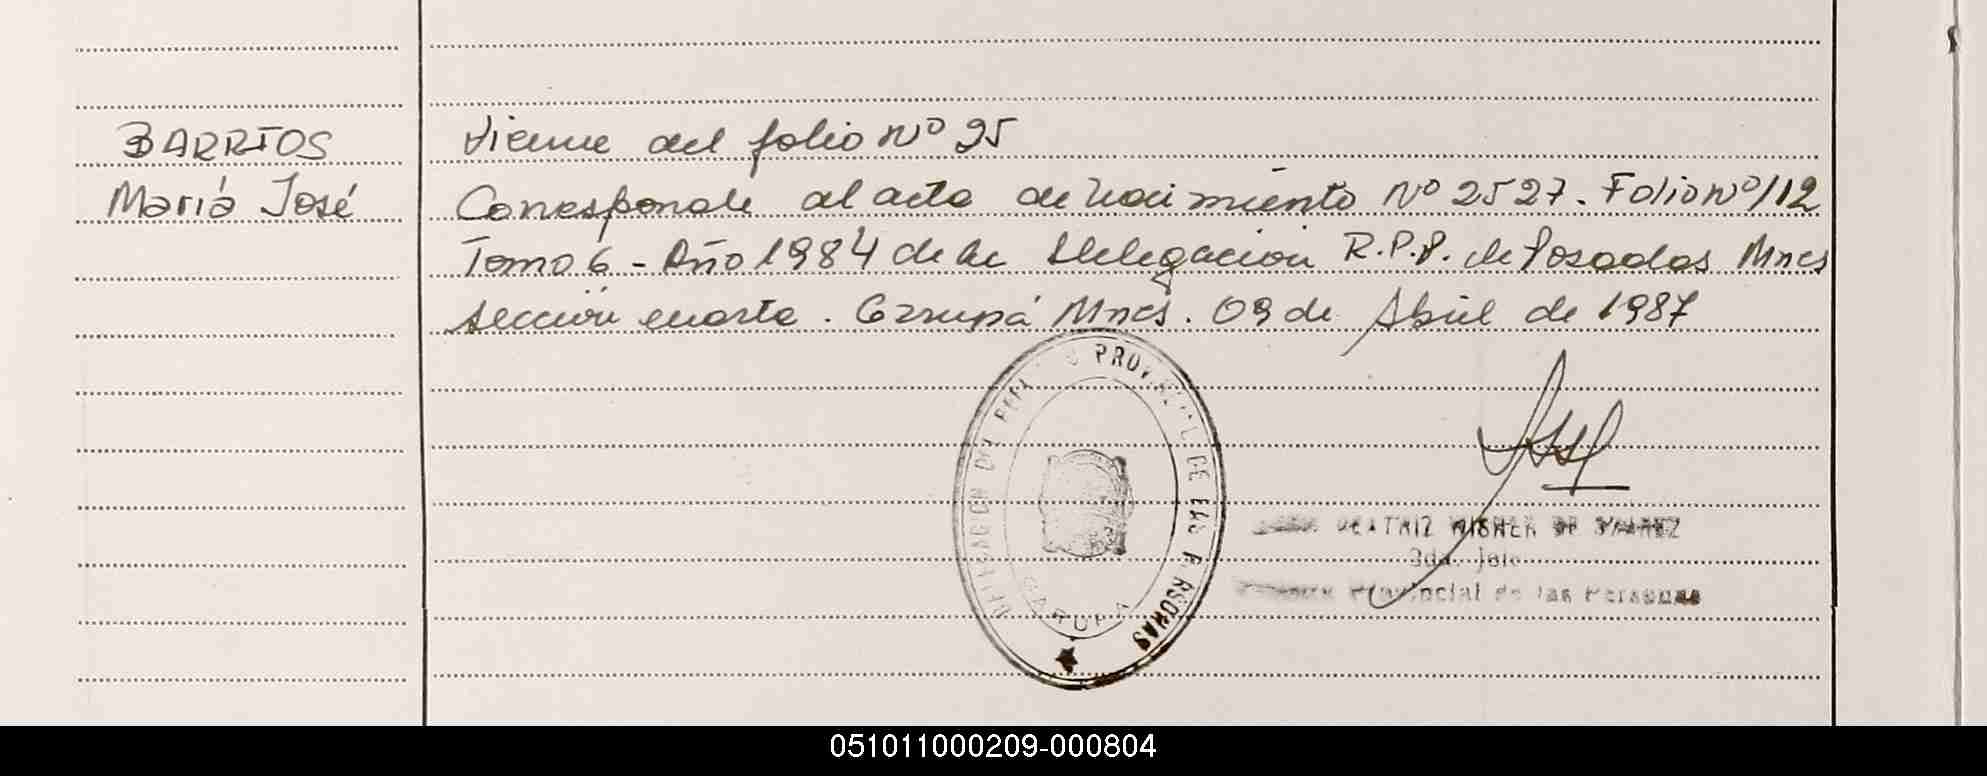 BARRIOS
María José
Viene del folio Nº 25
Corresponde al acta de nacimiento Nº 2527. Folio Nº 112
Tomo 6 - Año 1984 de la Delegación R.P.P. de Posadas Mnes
sección cuarta. Garupá Mnes. 09 de Abril de 1987
DELEGACION DEL REGISTRO PROVINCIAL DE LAS PERSONAS
GARUPA
BEATRIZ DE SUAREZ
2da. Jefe
Provincial de las Personas
051011000209-000804